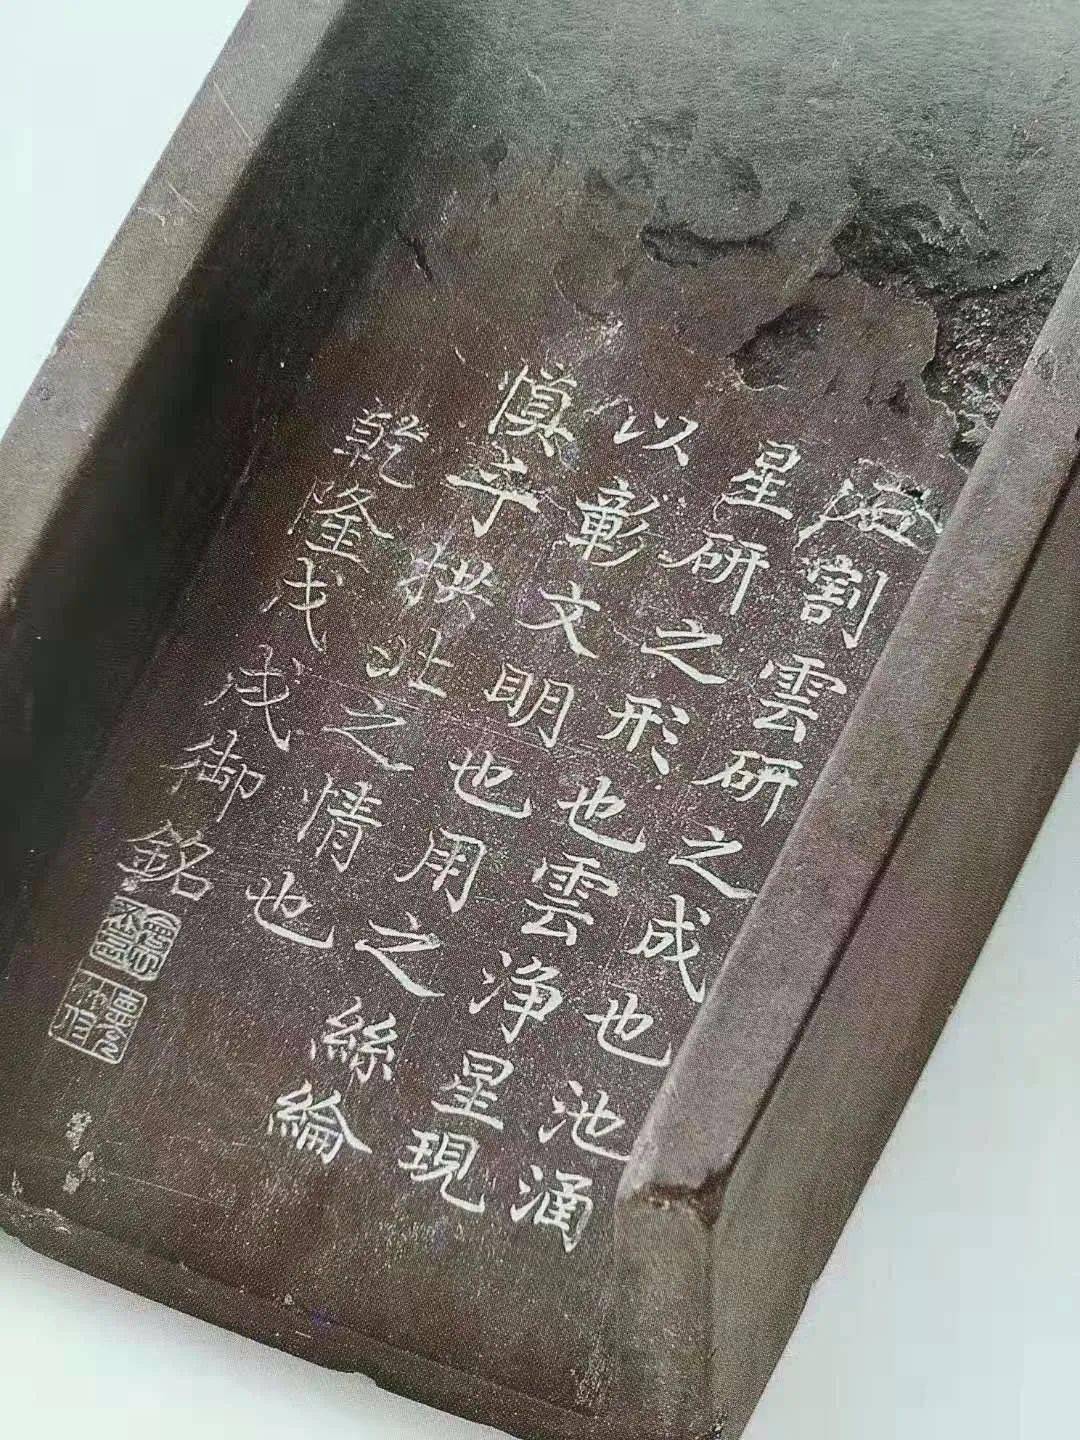 割雲研之成也池涌
星研之形也雲浄星現
以彰文明也用之絲綸
慎于拱北之情也
乾隆戊戌御銘